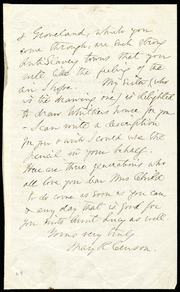 & Groveland, which you
come through, are such strong
Anti Slavery towns that you
will like the feeling of the
My Sister (who
is the drawing one) is delighted
to draw Whittier's house for you
- I can write a description
for you & wish I could use the
pencil in your behalf.
Here are three generations who
all love you dear Mrs Child
so do come as soon as you can
& any day that is good for
you suits Aunt Lucy as well
Yours very truly
Mary R.